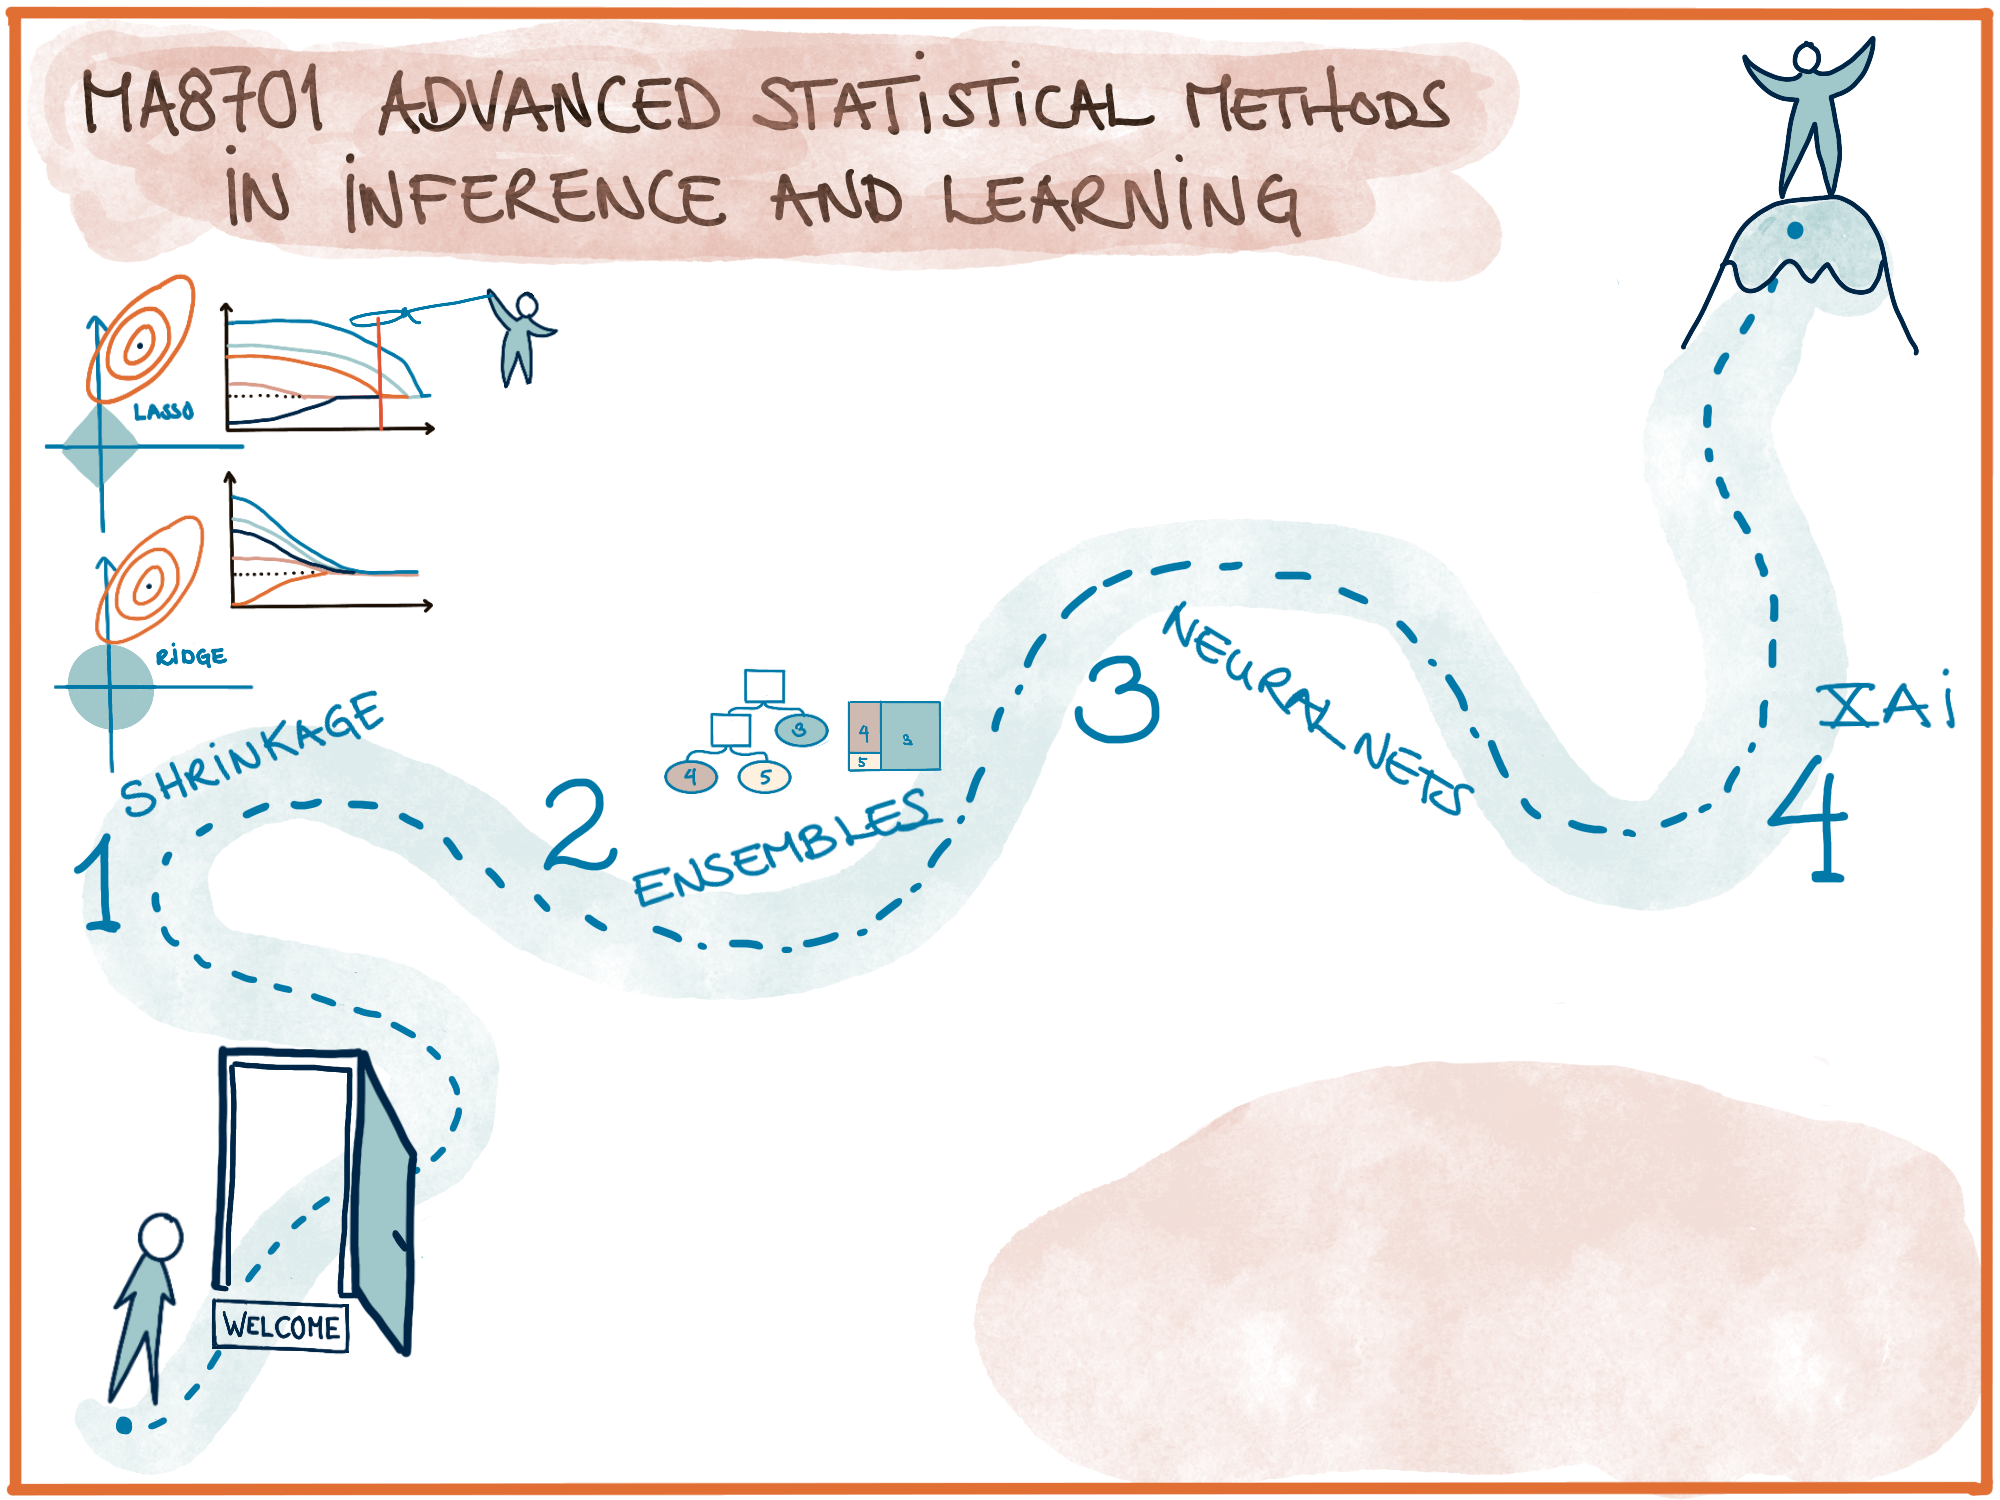 MA8701 ADVANCED STATISTICAL METHODS
IN INFERENCE AND LEARNING
LASSO
RIDGE
SHRINKAGE
1
2
3
4
5
4
3
5
ENSEMBLES
3
NEURAL NETS
XAI
4
WELCOME